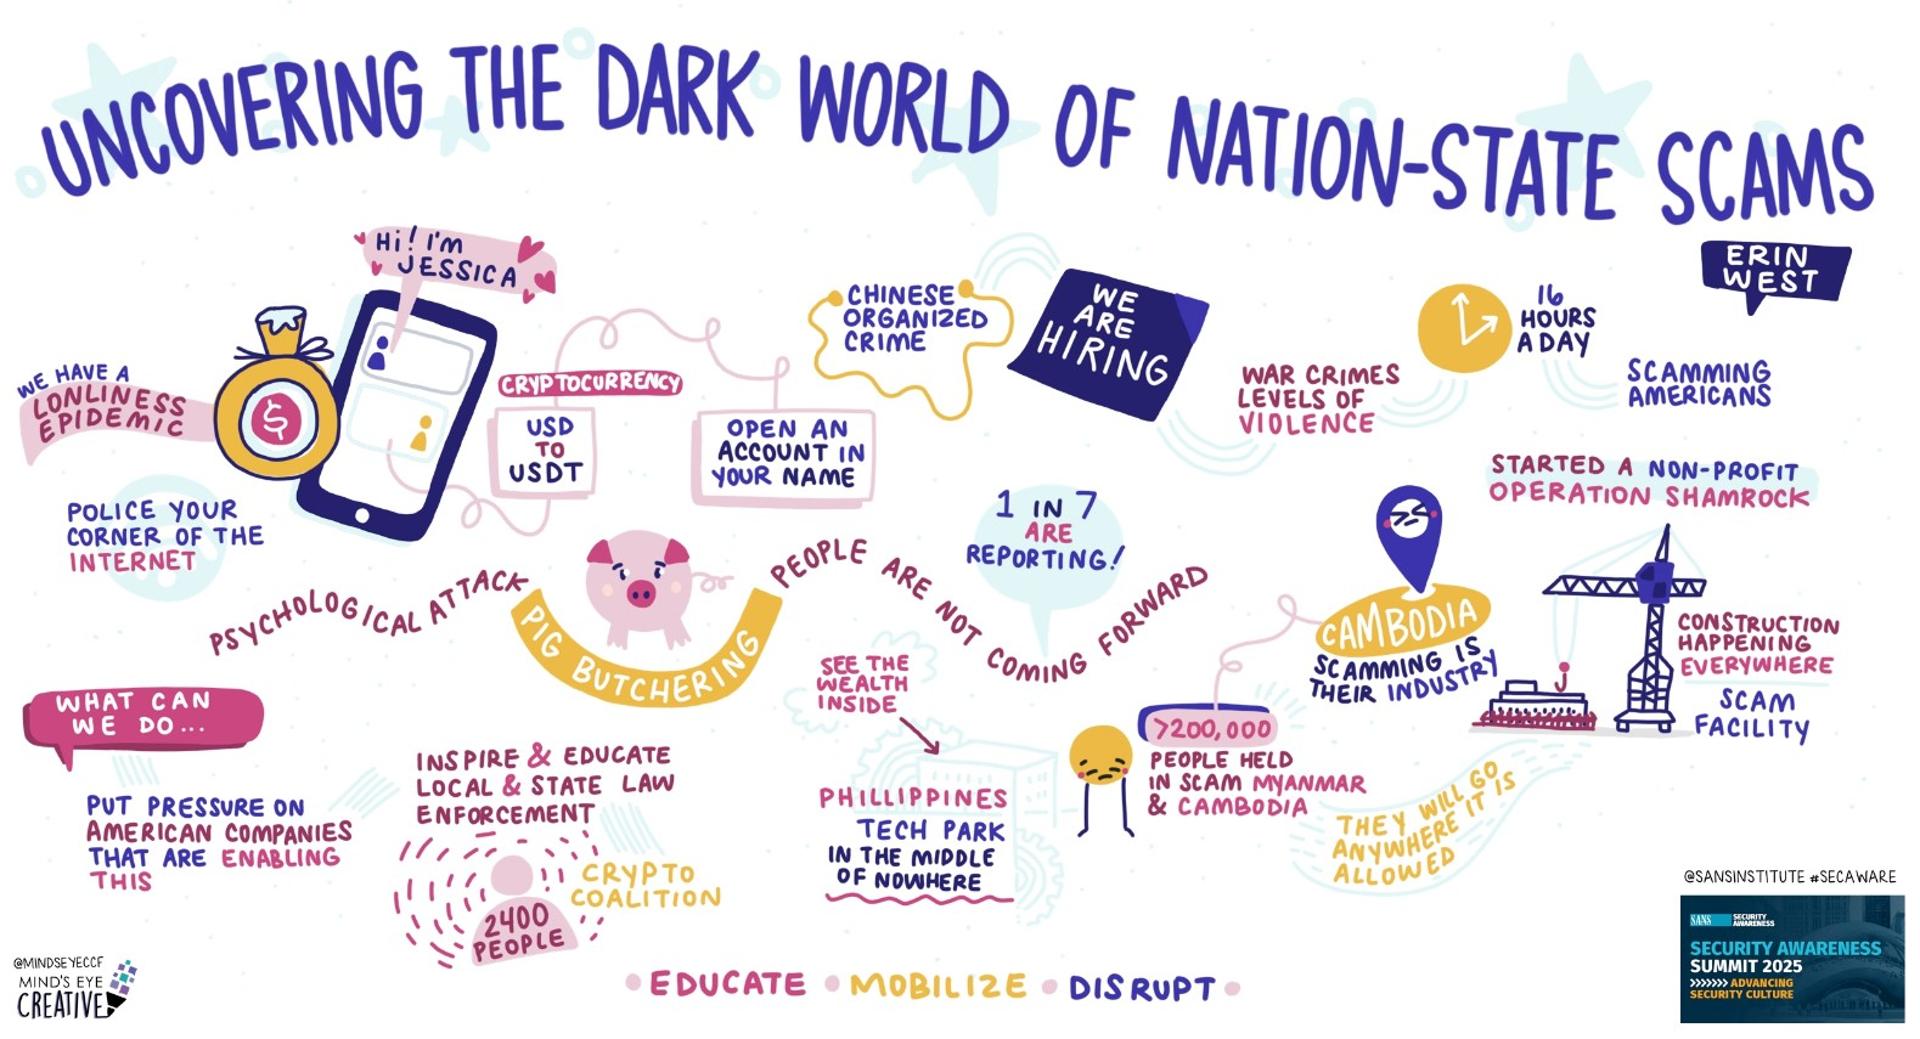 UNCOVERING THE DARK WORLD OF NATION-STATE SCAMS
ERIN
WEST
Hi! I'M
JESSICA
WE HAVE A
LONLINESS
EPIDEMIC
$
POLICE YOUR
CORNER OF THE
INTERNET
CRYPTOCURRENCY
USD
TO
USDT
OPEN AN
ACCOUNT IN
YOUR NAME
CHINESE
ORGANIZED
CRIME
WE
ARE
HIRING
WAR CRIMES
LEVELS OF
VIOLENCE
16
HOURS
A DAY
SCAMMING
AMERICANS
STARTED A NON-PROFIT
OPERATION SHAMROCK
PSYCHOLOGICAL ATTACK
PIG BUTCHERING
PEOPLE ARE NOT COMING FORWARD
1 IN 7
ARE
REPORTING!
CAMBODIA
SCAMMING IS
THEIR INDUSTRY
CONSTRUCTION
HAPPENING
EVERYWHERE
SCAM
FACILITY
SEE THE
WEALTH
INSIDE
PHILLIPPINES
TECH PARK
IN THE MIDDLE
OF NOWHERE
>200,000
PEOPLE HELD
IN SCAM MYANMAR
& CAMBODIA
THEY WILL GO
ANYWHERE IT IS
ALLOWED
WHAT CAN
WE DO...
PUT PRESSURE ON
AMERICAN COMPANIES
THAT ARE ENABLING
THIS
INSPIRE & EDUCATE
LOCAL & STATE LAW
ENFORCEMENT
CRYPTO
COALITION
2400
PEOPLE
• EDUCATE • MOBILIZE • DISRUPT •
@MINDSEYECCF
MIND'S EYE
CREATIVE
@SANSINSTITUTE #SECAWARE
SANS SECURITY
AWARENESS
SECURITY AWARENESS
SUMMIT 2025
>>>>>>> ADVANCING
SECURITY CULTURE